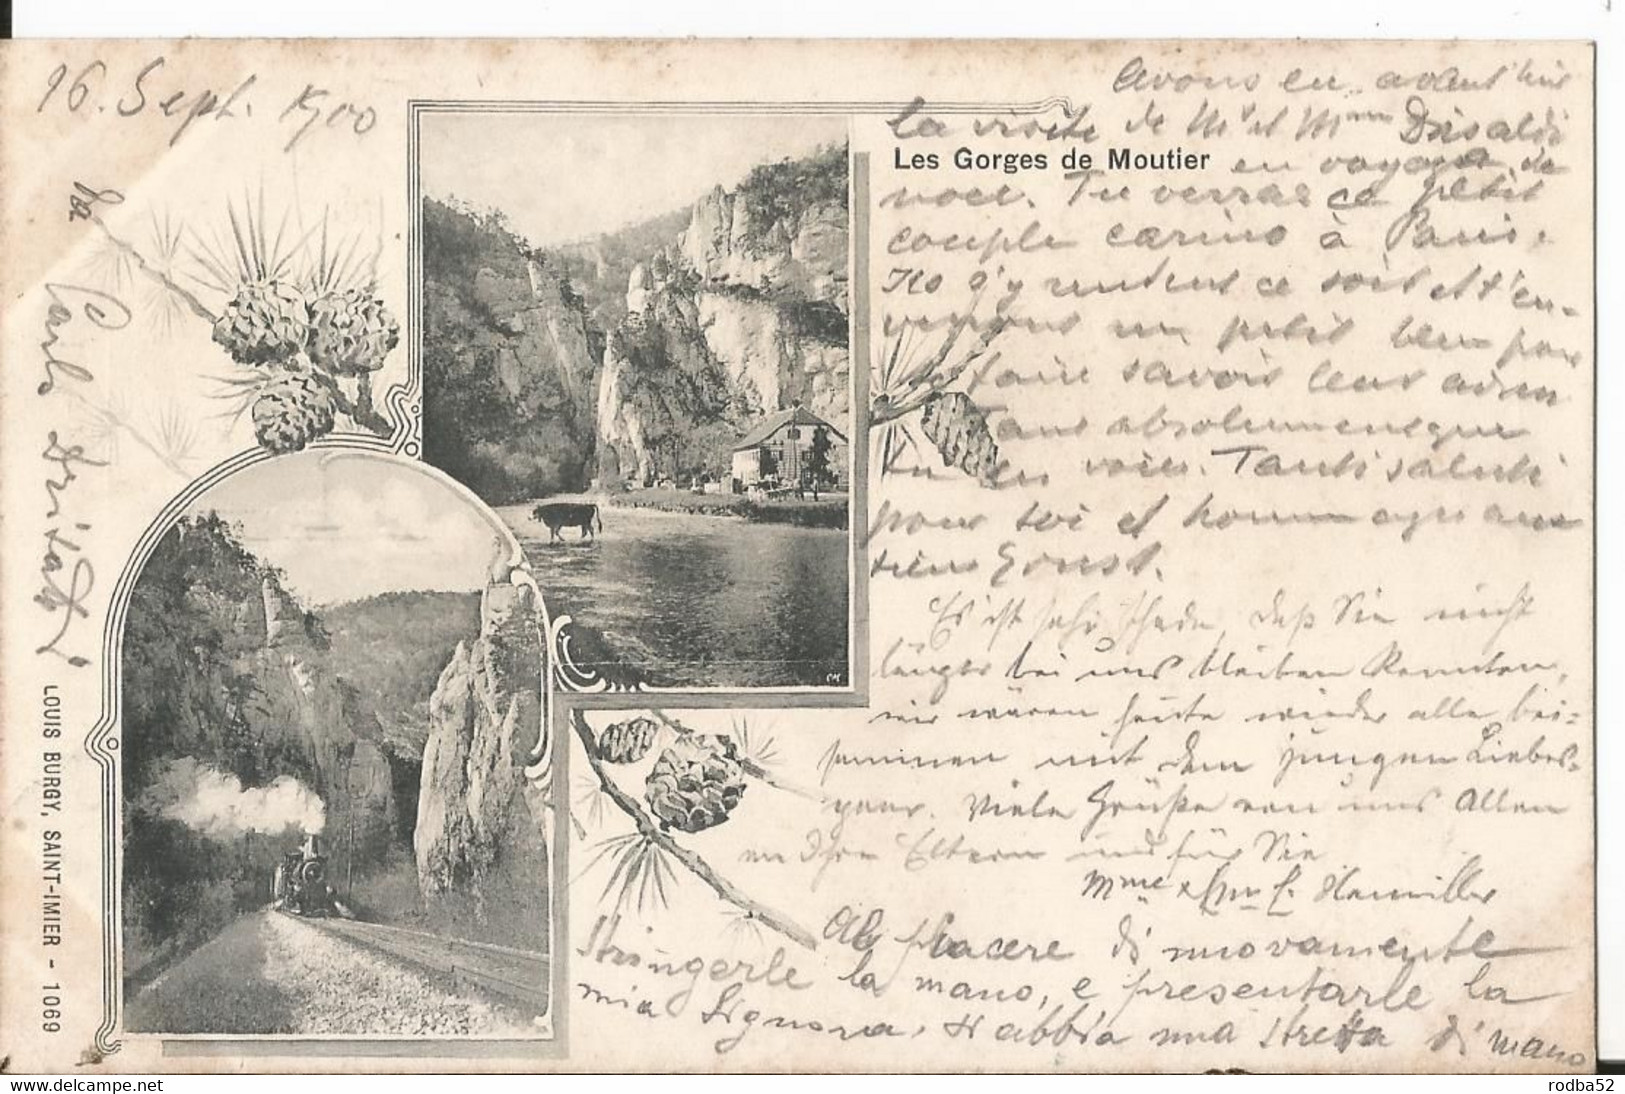 16. Sept. 1900
avons eu avant hier
la visite de Mr et Mme Drisaldi
Les Gorges de Moutier
en voyage de
noce. Tu verras ce petit
couple carino à Paris.
Ils s'y rendent ce soir et t'en-
verront un petit bleu pour
te faire savoir leur
absolument que
tu les voies. Tanti saluti
pour toi et hommages aux
tiens Ernst.
Es ist sehr schade, daß Sie nicht
länger bei uns bleiben konnten,
wir wären heute wieder alle bei-
sammen mit dem jungen Liebes-
paar. Viele Grüße von uns Allen
an Ihre Eltern und für Sie
Mme
Al piacere di nuovamente
stringerle la mano, e presentarle la
mia Signora, si abbia una stretta di mano
da Carlo
LOUIS BURGY, SAINT-IMIER - 1069
rodba52